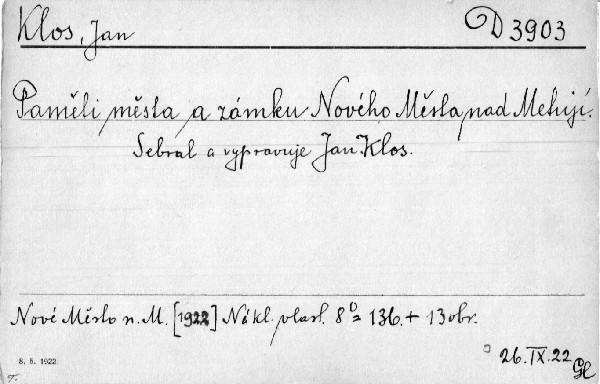 Klos, Jan
D 3903
Paměti města a zámku Nového Města nad Metují.
Sebral a vypravuje Jan Klos.
Nové Město n. M. [1922] Nákl. vlast. 8° = 136. + 13 obr.
8. 5. 1922.
26. IX. 22 Gl
T.